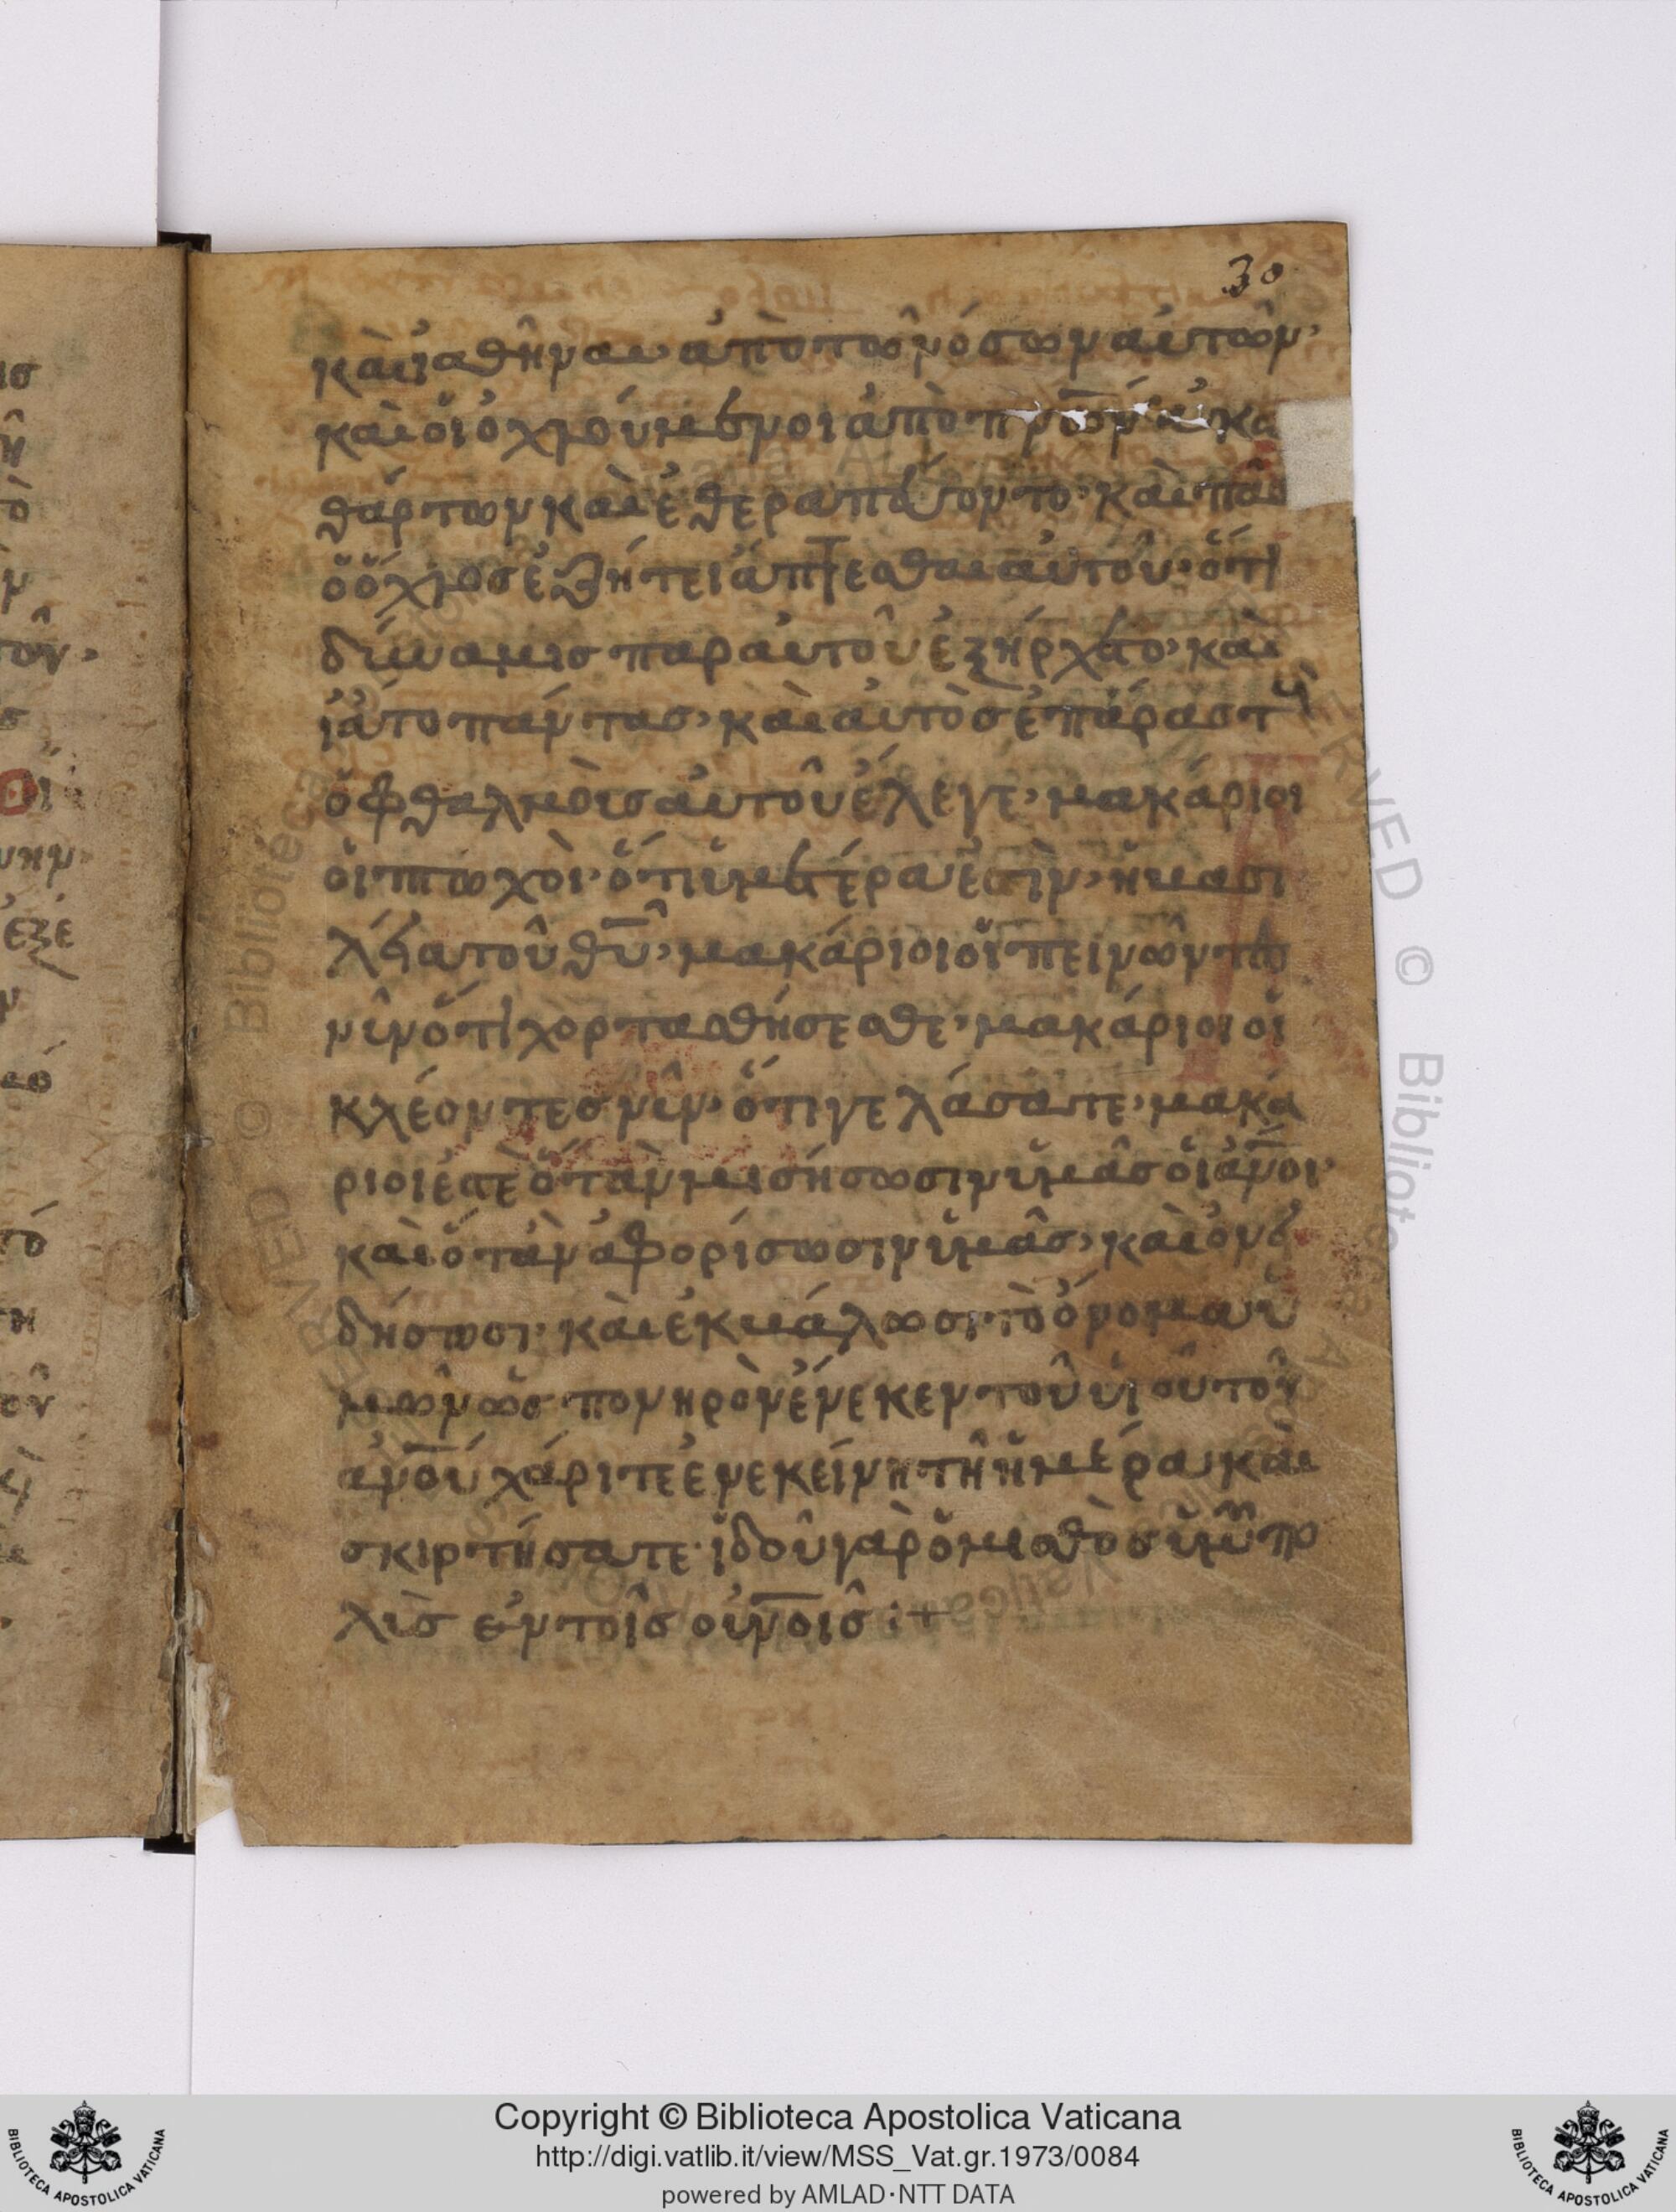 30
καὶ ἰαθῆναι ἀπὸ τῶ νόσων αὐτῶν·
καὶ οἱ ὀχλούμενοι ἀπὸ πν̅ων ἀκα
θάρτων καὶ ἐθεραπεύοντο· καὶ πᾶσ
ὁ ὄχλοσ ἐζήτει ἅπτεσθαι αὐτοῦ· ὅτι
δύναμισ παρ αὐτοῦ ἐξήρχετο· καὶ
ἰάτο πάντασ· καὶ αὐτὸσ ἐπάρασ τȣ
ὀφθαλμοὺσ αὐτοῦ ἔλεγε· μακάριοι
οἱ πτωχοὶ· ὅτι ὑμετέρα ἐστὶν· ἡ βασι
λεία τοῦ θυ̅· μακάριοι οἱ πεινῶντεσ
νῦν ὅτι χορτασθήσεσθε· μακάριοι οἱ
κλέοντεσ νῦν· ὅτι γελάσατε· μακά
ριοι ἐστὲ ὅταν μισήσωσιν ὑμᾶσ οἱ ἀν̅οι·
καὶ ὅταν ἀφορίσωσιν ὑμᾶσ· καὶ ὀνει
δήσωσι· καὶ ἐκβάλωσι τὸ ὄνομα ὑ
μῶν ὡσ πονηρὸν ἕνεκεν τοῦ υἱοῦ τοῦ
ἀν̅ου χάριτε ἐν εκείνη τῆ ἡμέρα καὶ
σκιρτήσατε· ἰδοῦ γαρ ὁ μισθὸσ ὑμῶ πο
λὺσ ἐν τοῖσ οὐν̅οισ :+
ισ
ῆ
τοῦ·
οἱ
νην
ἐξέ
τη
Copyright © Biblioteca Apostolica Vaticana
http://digi.vatlib.it/view/MSS_Vat.gr.1973/0084
powered by AMLAD·NTT DATA
BIBLIOTECA APOSTOLICA VATICANA
BIBLIOTECA APOSTOLICA VATICANA